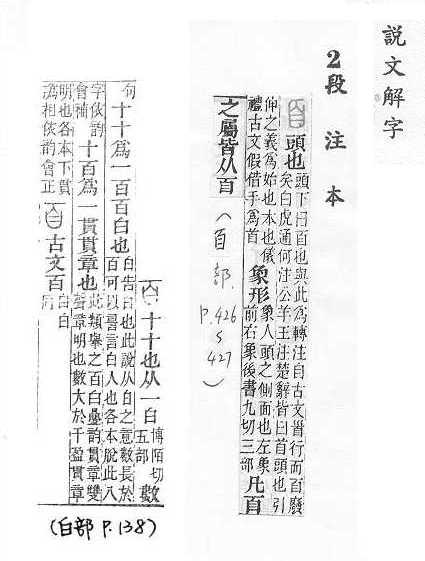 說文解字
2段注本
頭也 頭下曰𦣻也與此爲轉注自古文𩠐行而𦣻廢
矣白虎通何注公羊王注楚辭皆曰首頭也引
伸之義爲始也本也儀
禮古文假借手爲首 象形 象人頭之側面也左象
前右象後書九切三部 凡𦣻
之屬皆从𦣻
(𦣻部. P.426 ~ 427)
十十也从一白 博陌切
五部 數
句十十爲一百百白也 白告白也此說从白之意數長於
百可以 言白人也各本脫此八
字依韵
會補 十百爲一貫貫章也 此類舉之百白疊韵貫章雙
聲章明也數大於千盈貫章
明也各本下貫
爲相依韵會正 古文百
(白部 P.138)